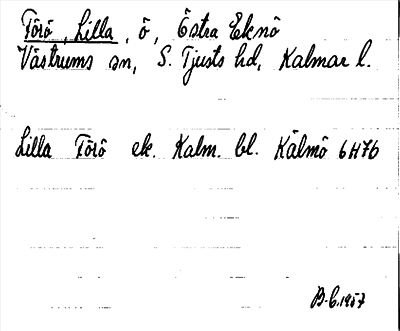 Förö, Lilla, ö, Östra Eknö
Västrums sn, S. Tjusts hd, Kalmar l.
Lilla Förö ek. Kalm. bl. Kälmö 6H7b
B-C.1957